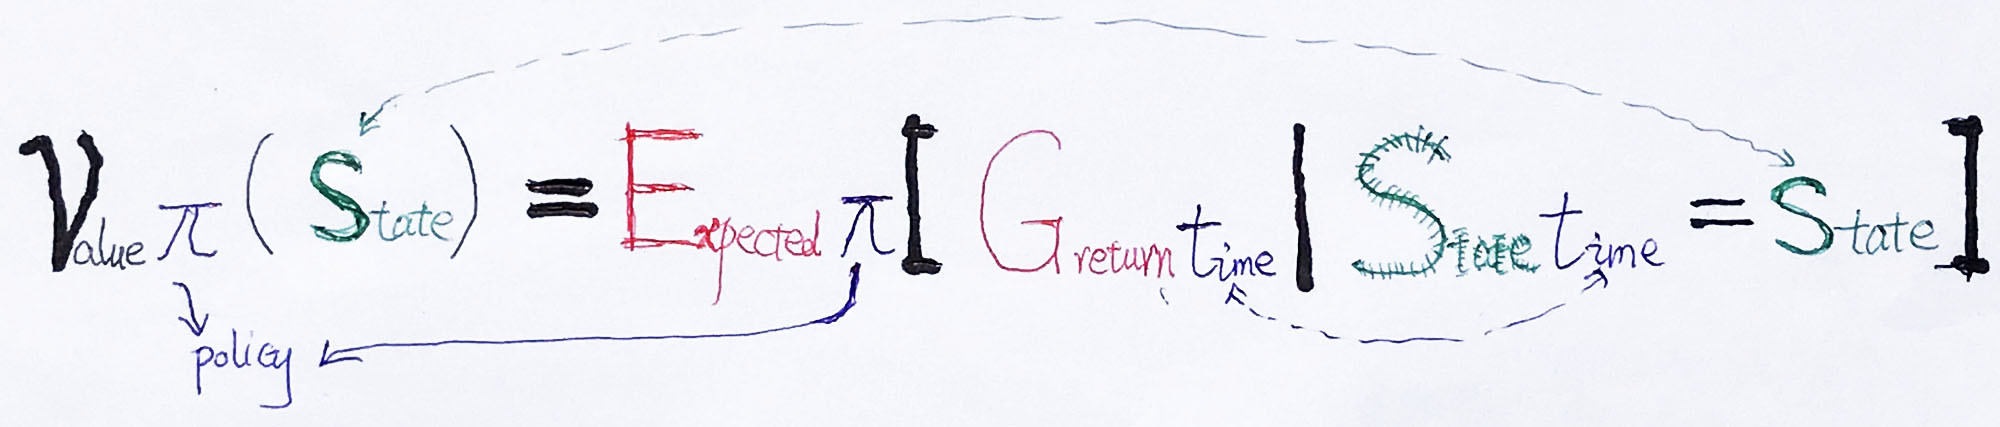 Value π (State) = Expected π [ Greturn time | State time = State ]
policy